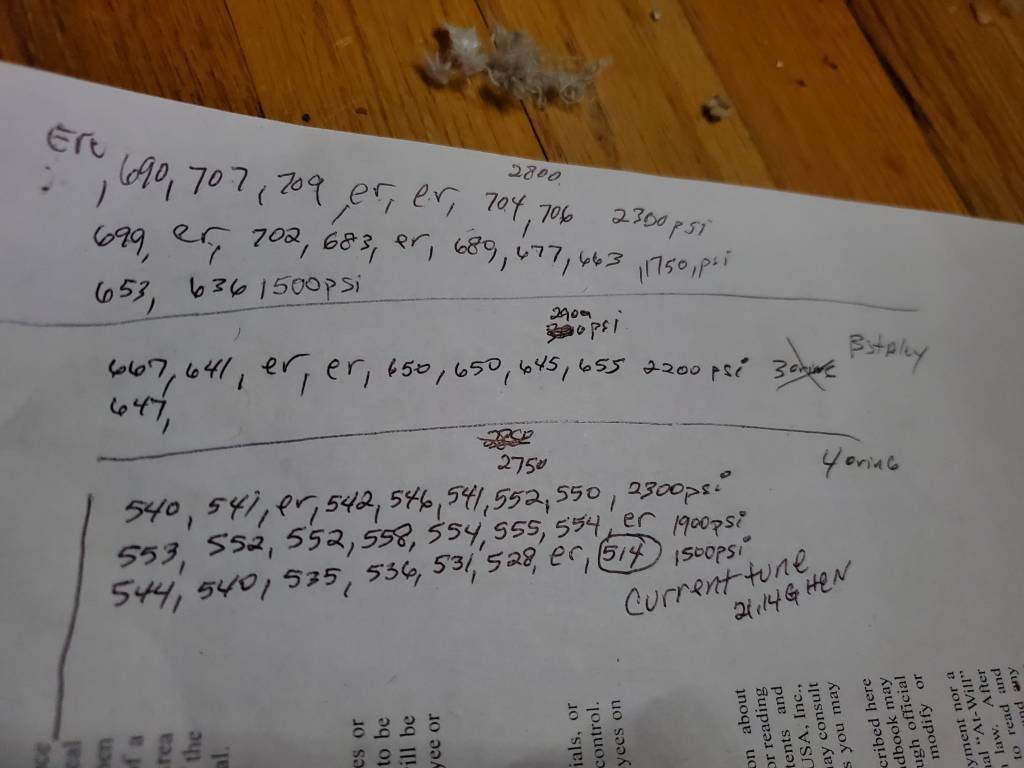 2800
, 690, 707, 709, er, er, 704, 706 2300psi
699, er, 702, 683, er, 680, 677, 663, 1750, psi
653, 636, 1500psi
psi
667, 641, er, er, 650, 650, 645, 655 2200psi
647,
4 oring
2750
540, 541, er, 542, 546, 541, 552, 550, 2300psi
553, 552, 552, 558, 554, 555, 554, er 1900psi
544, 540, 535, 536, 531, 528, er, 514 1500psi
Current tune
of a
area
the
al.
es or
to be
ill be
yee or
ials, or
control.
yees on
on about
or reading
tents and
USA, Inc.,
may consult
s you may
cribed here
dbook may
ugh official
modify or
yment nor a
ial "At-Will"
law. After
to read and